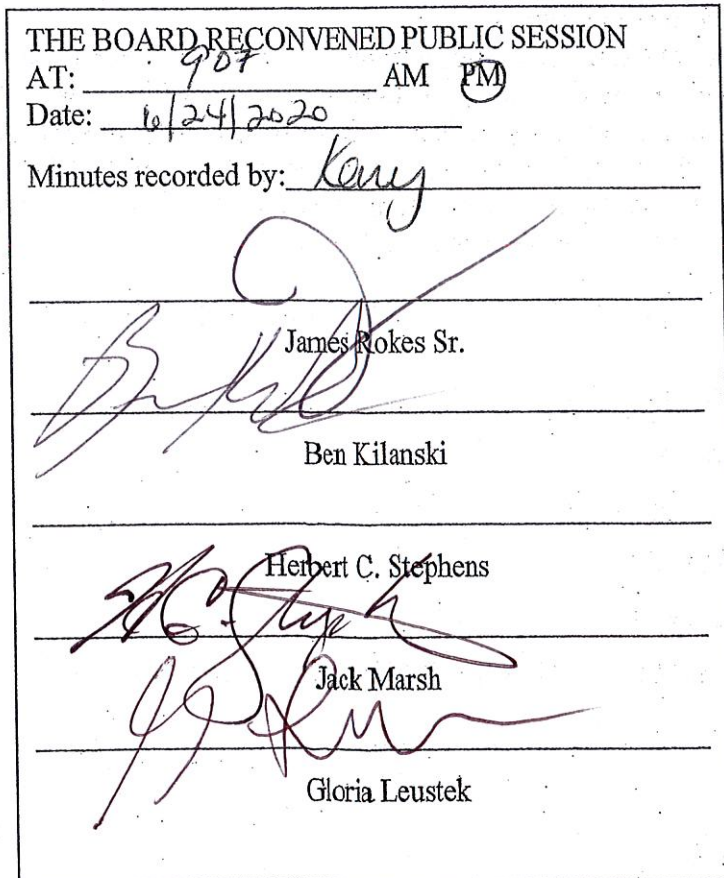 THE BOARD RECONVENED PUBLIC SESSION
AT: 907 AM PM
Date: 6/24/2020
Minutes recorded by:
James Rokes Sr.
Ben Kilanski
Herbert C. Stephens
Jack Marsh
Gloria Leustek